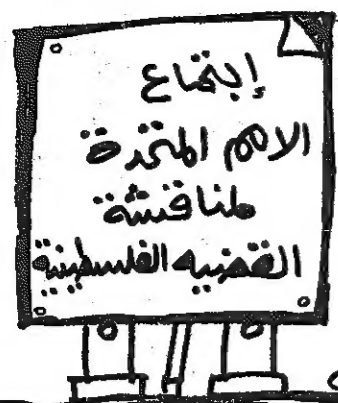 إجتماع
الامم المتحدة
لمناقشة
القضيه الفلسطينية